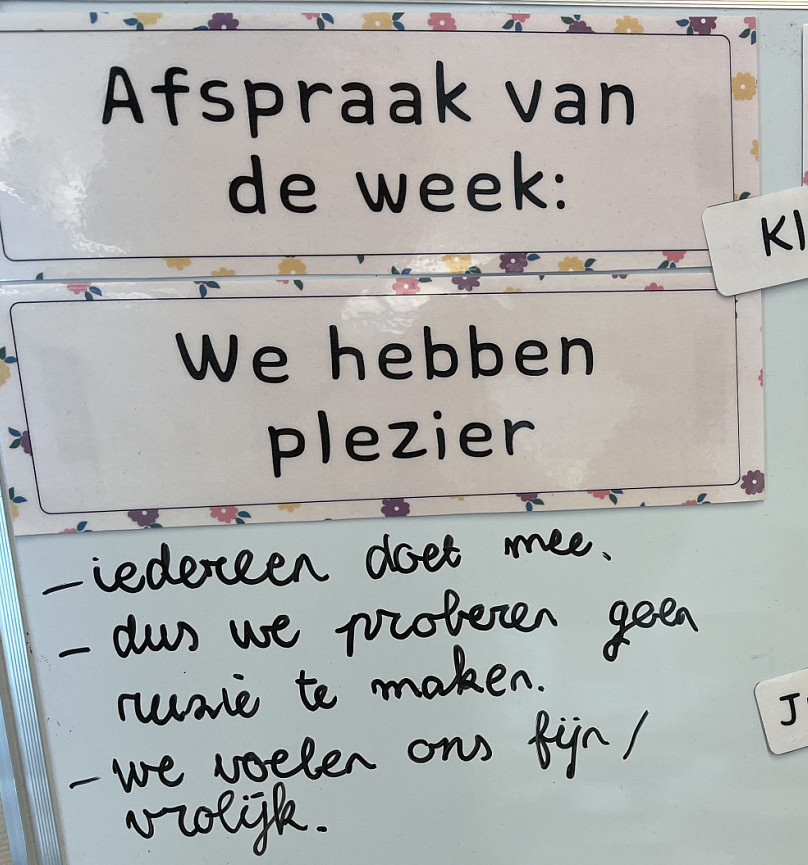 Afspraak van
de week:
Kl
We hebben
plezier
- iedereen doet mee.
- dus we proberen geen
ruzie te maken.
J
- we voelen ons fijn /
vrolijk.